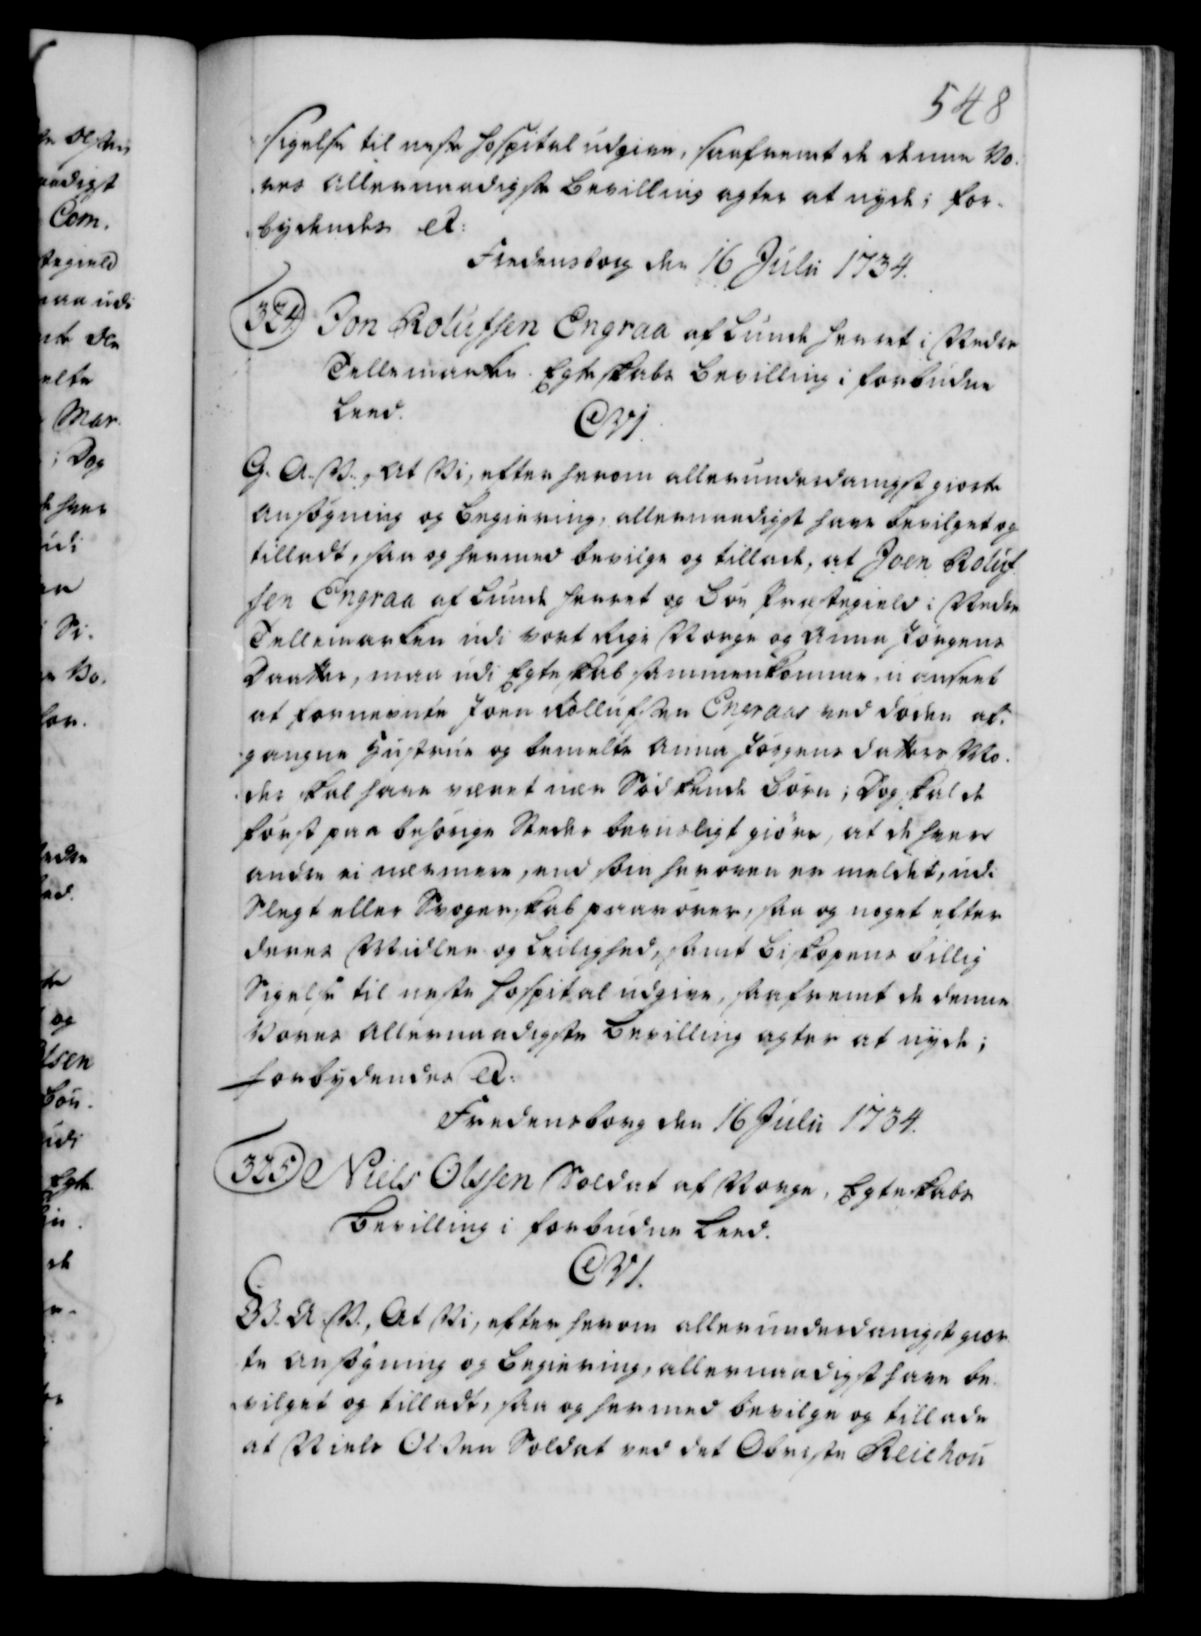 548
sigelse til neste Hospital udgive, saafremt de denne Vo¬
res allernaadigste Bevilling agter at nyde; for¬
bydendes etc:
Fredensborg den 16 Julii 1734.
324 Jon Rolufsen Engraa af Lunde Herret i Nedre
Tellemarken Egteskabs Bevilling i forbudne
Leed.
C VI.
G. A. V., At Vi, efter herom allerunderdanigst giorte
Ansøgning og Begiering, allernaadigst have bevilget og
tilladt, saa og hermed bevilge og tillade, at Joen Roluf¬
sen Engraa af Lunde Herret og Bøe Præstegield i Nedre
Tellemarken udi vort Rige Norge og Anna Jørgens
Daatter, maa udi Egteskab sammenkomme, u anseet
at fornevnte Joen Rollufsen Engraas ved døden af¬
gangne Hustrue og bemelte Anna Jørgens datters Mo¬
der skal have været nær Sødskende Børn; Dog skal de
først paa behørige Steder beviisligt giøre, at de hver
andre ei nærmere, end som herover er meldet, udi
Slegt eller Svogerskab paarører, saa og noget efter
deres Midler og Leilighed, samt Biskopens billig
Sigelse til neste Hospital udgive, saafremt de denne
Vores allernaadigste Bevilling agter at nyde;
forbydendes etc:
Fredensborg den 16 Julii 1734.
325 Niels Olssen Soldat af Norge, Egteskabs
Bevilling i forbudne Leed.
C VI.
G. A. V., At Vi, efter herom allerunderdanigst gior¬
te Ansøgning og Begiering, allernaadigst have be¬
vilget og tilladt, saa og hermed bevilge og tillade
at Niels Olsen Soldat ved det Obriste Reichou